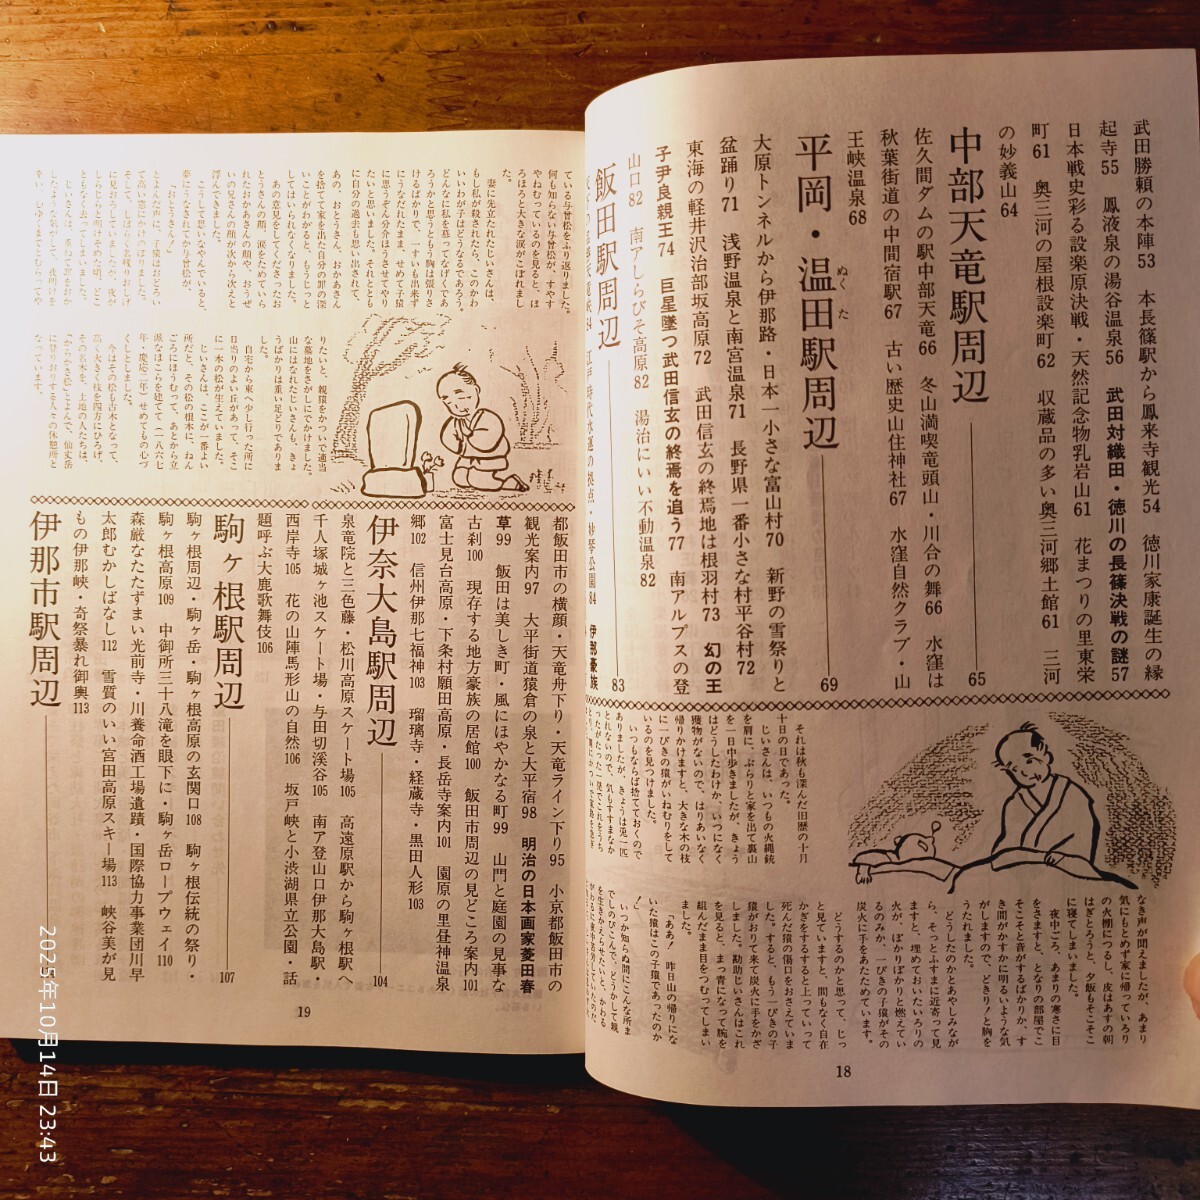 武田勝頼の本陣53　本長篠駅から鳳来寺観光54　徳川家康誕生の縁
起寺55　鳳液泉の湯谷温泉56　武田対織田・徳川の長篠決戦の謎57
日本戦史彩る設楽原決戦・天然記念物乳岩山61　花まつりの里東栄
町61　奥三河の屋根設楽町62　収蔵品の多い奥三河郷土館61　三河
の妙義山64
中部天竜駅周辺 65
佐久間ダムの駅中部天竜66　冬山満喫竜頭山・川合の舞66　水窪は
秋葉街道の中間宿駅67　古い歴史山住神社67　水窪自然クラブ・山
王峡温泉68
平岡・温田駅周辺 69
ぬくた
大原トンネルから伊那路・日本一小さな富山村70　新野の雪祭りと
盆踊り71　浅野温泉と南宮温泉71　長野県一番小さな村平谷村72
東海の軽井沢治部坂高原72　武田信玄の終焉地は根羽村73　幻の王
子尹良親王74　巨星墜つ武田信玄の終焉を追う77　南アルプスの登
山口82　南アしらびそ高原82　湯治にいい不動温泉82
飯田駅周辺 83
それは秋も深んだ旧歴の十月
十日の日であった。
じいさんは、いつもの火縄銃
を肩に、ぶらりと家を出て裏山
を一日中歩きましたが、きょう
はどうしたわけか、いつになく
獲物がないので、はりあいなく
帰りかけますと、大きな木の枝
に一ぴきの猿がいねむりをして
いるのを見つけました。
いつもならば捨てておくので
ありましたが、きょうは兎一匹
とれないので、気もすすまなか
なき声が聞えましたが、あまり
気にもとめず家に帰っていろり
の火棚につるし、皮はあすの朝
はぎとろうと、夕飯もそこそこ
に寝てしまいました。
夜中ごろ、あまりの寒さに目
をさますと、となりの部屋でこ
そこそと音がするばかりか、す
き間がかすかに明るいような気
がしますので、どきり！と胸を
うたれました。
どうしたのかとあやしみなが
ら、そっとふすまに近寄って見
ますと、埋めておいたいろりの
火が、ぽかりぽかりと燃えてい
るのみか、一ぴきの子猿がその
炭火に手をあたためています。
どうするのかと思って、じっ
と見ていますと、間もなく自在
かぎをするすると上っていって
死んだ猿の傷口をおさえていま
した。すると、もう一ぴきの子
猿がおりて来て炭火に手をかざ
しました。勘助じいさんはこれ
を見ると、まっ青になって腕を
組んだまま目をつむってしまい
ました。
「ああ！　昨日山の帰りにな
いた猿はこの子猿であったのか
！」
いつか知らぬ間にこんな所ま
でしのびこんで、どうかして親
18
ている与曽松をふり返りました。
何も知らない与曽松が、すやす
やねむっているのを見ると、ほ
ろほろと大きな涙がこぼれまし
た。
妻に先立たれたじいさんは、
もし私が殺されたら、このかわ
いいわが子はどうなるであろう。
どんなに私を慕ってなげくであ
ろうかと思うともう胸は張りさ
けるばかりで、一すいも出来ず
にうなだれたまま、せめて子猿
に思うぞんぶん分ほうさせてやり
たいと思いました。それととも
に自分の過去も思い出されて、
あの、おとうさん、おかあさん
を捨てて家を出た自分の罪の深
いことがわかると、もうじっと
してはいられなくなりました。
あの意見をしてくださったお
とうさんの顔、涙をためていら
れたおかあさんの顔や、おうぜ
いの兄さんの顔が次から次えと
浮んできました。
こうして思いなやんでいると、
夢にうなされてか与曽松が、
「おとうさん！」
りたいと、親猿をかついで適当
な墓地をさがしにでかけました。
山にはなれたじいさんも、きょ
うばかりは重い足どりでありま
した。
自宅から東へ少し行った所に
日当りのよい丘があって、そこ
に一本の松が生えていました。
じいさんは、ここが一番よい
所だと、その松の根本に、ねん
ごろにほうむって、あとから立
派なほこらを建てて（一八六七
年・慶応二年）せめてもの心づ
くしとしました。
今はその松も古木となって、
高く大きく枝を四方にひろげ、
その名木を、土地の人たちは、
都飯田市の横顔・天竜舟下り・天竜ライン下り95　小京都飯田市の
観光案内97　大平街道猿倉の泉と大平宿98　明治の日本画家菱田春
草99　飯田は美しき町・風にほやかなる町99　山門と庭園の見事な
古刹100　現存する地方豪族の居館100　飯田市周辺の見どころ案内101
富士見台高原・下条村願田高原・長岳寺案内101　園原の里昼神温泉
郷102　信州伊那七福神103　瑠璃寺・経蔵寺・黒田人形103
伊奈大島駅周辺 104
泉竜院と三色藤・松川高原スケート場105　高遠原駅から駒ヶ根へ
千人塚城ヶ池スケート場・与田切渓谷105　南ア登山口伊那大島駅・
西岸寺105　花の山陣馬形山の自然106　坂戸峡と小渋湖県立公園・話
題呼ぶ大鹿歌舞伎106
駒ヶ根駅周辺 107
駒ヶ根周辺・駒ヶ岳・駒ヶ根高原の玄関口108　駒ヶ根伝統の祭り・
駒ヶ根高原109　中御所三十八滝を眼下に・駒ヶ岳ロープウェイ110
森厳なたたずまい光前寺・川養命酒工場遺蹟・国際協力事業団川早
太郎むかしばなし112　雪質のいい宮田高原スキー場113　峡谷美が見
もの伊那峡・奇祭暴れ御輿113
伊那市駅周辺
19
2025年10月14日 23:43